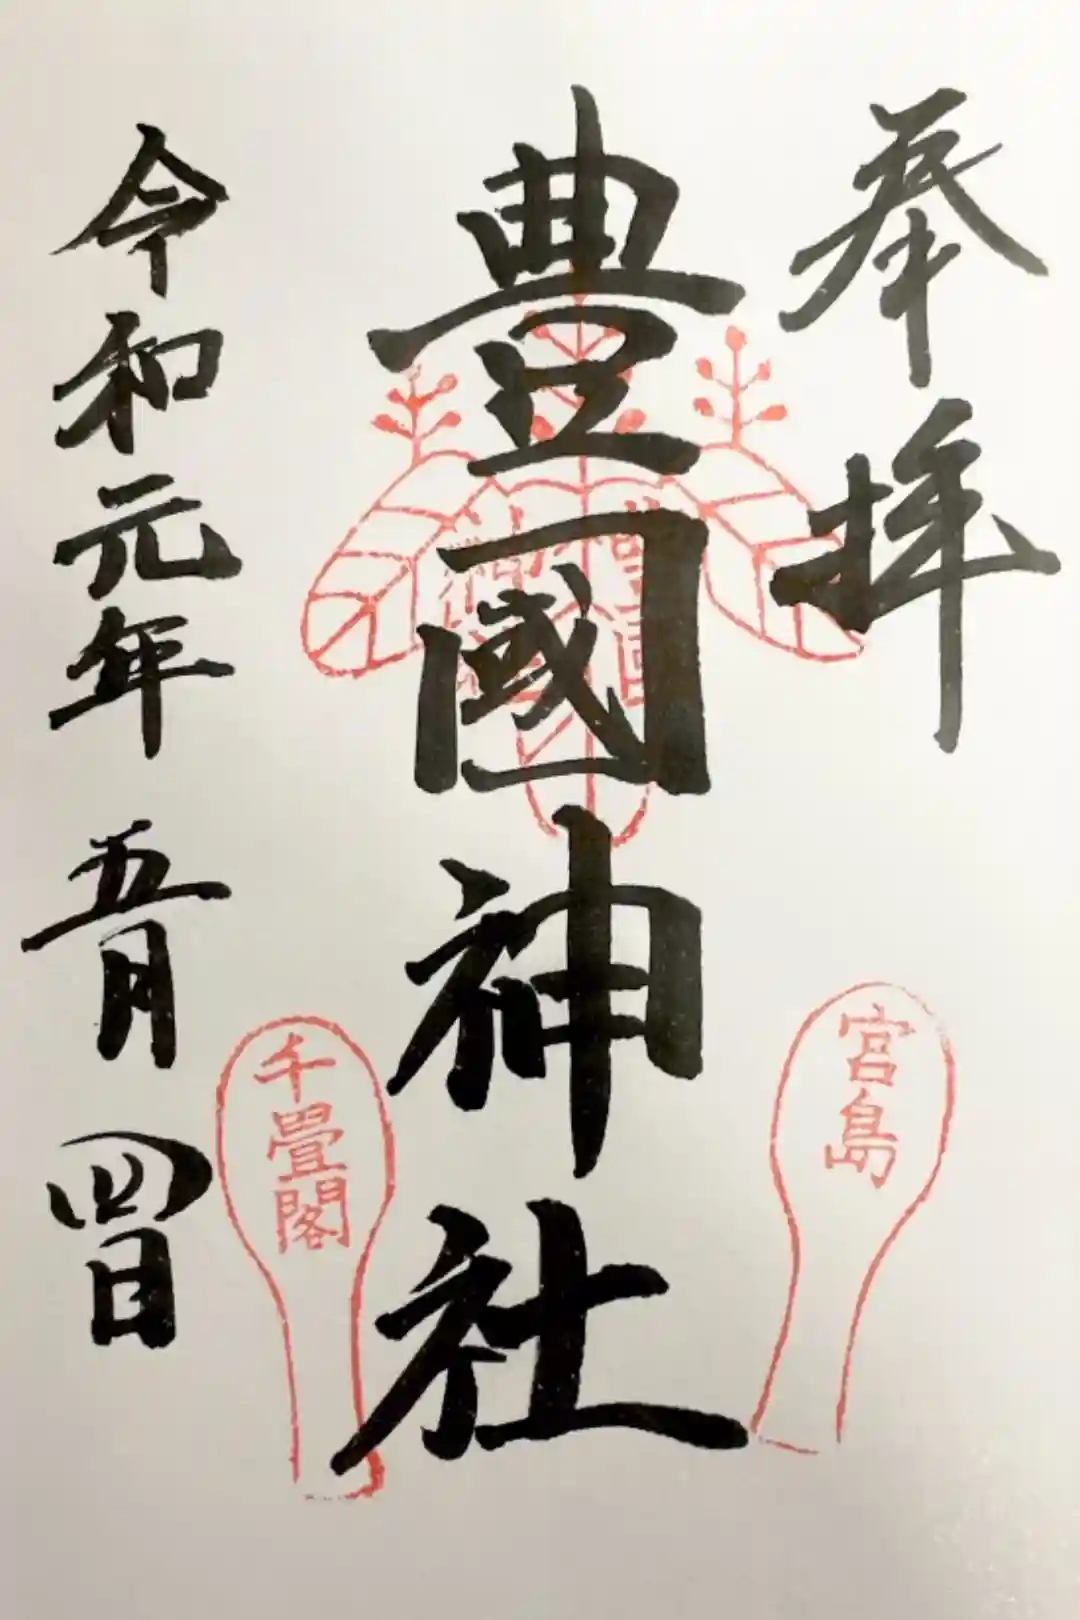 奉拝
豊國神社
令和元年五月四日
宮島
千畳閣